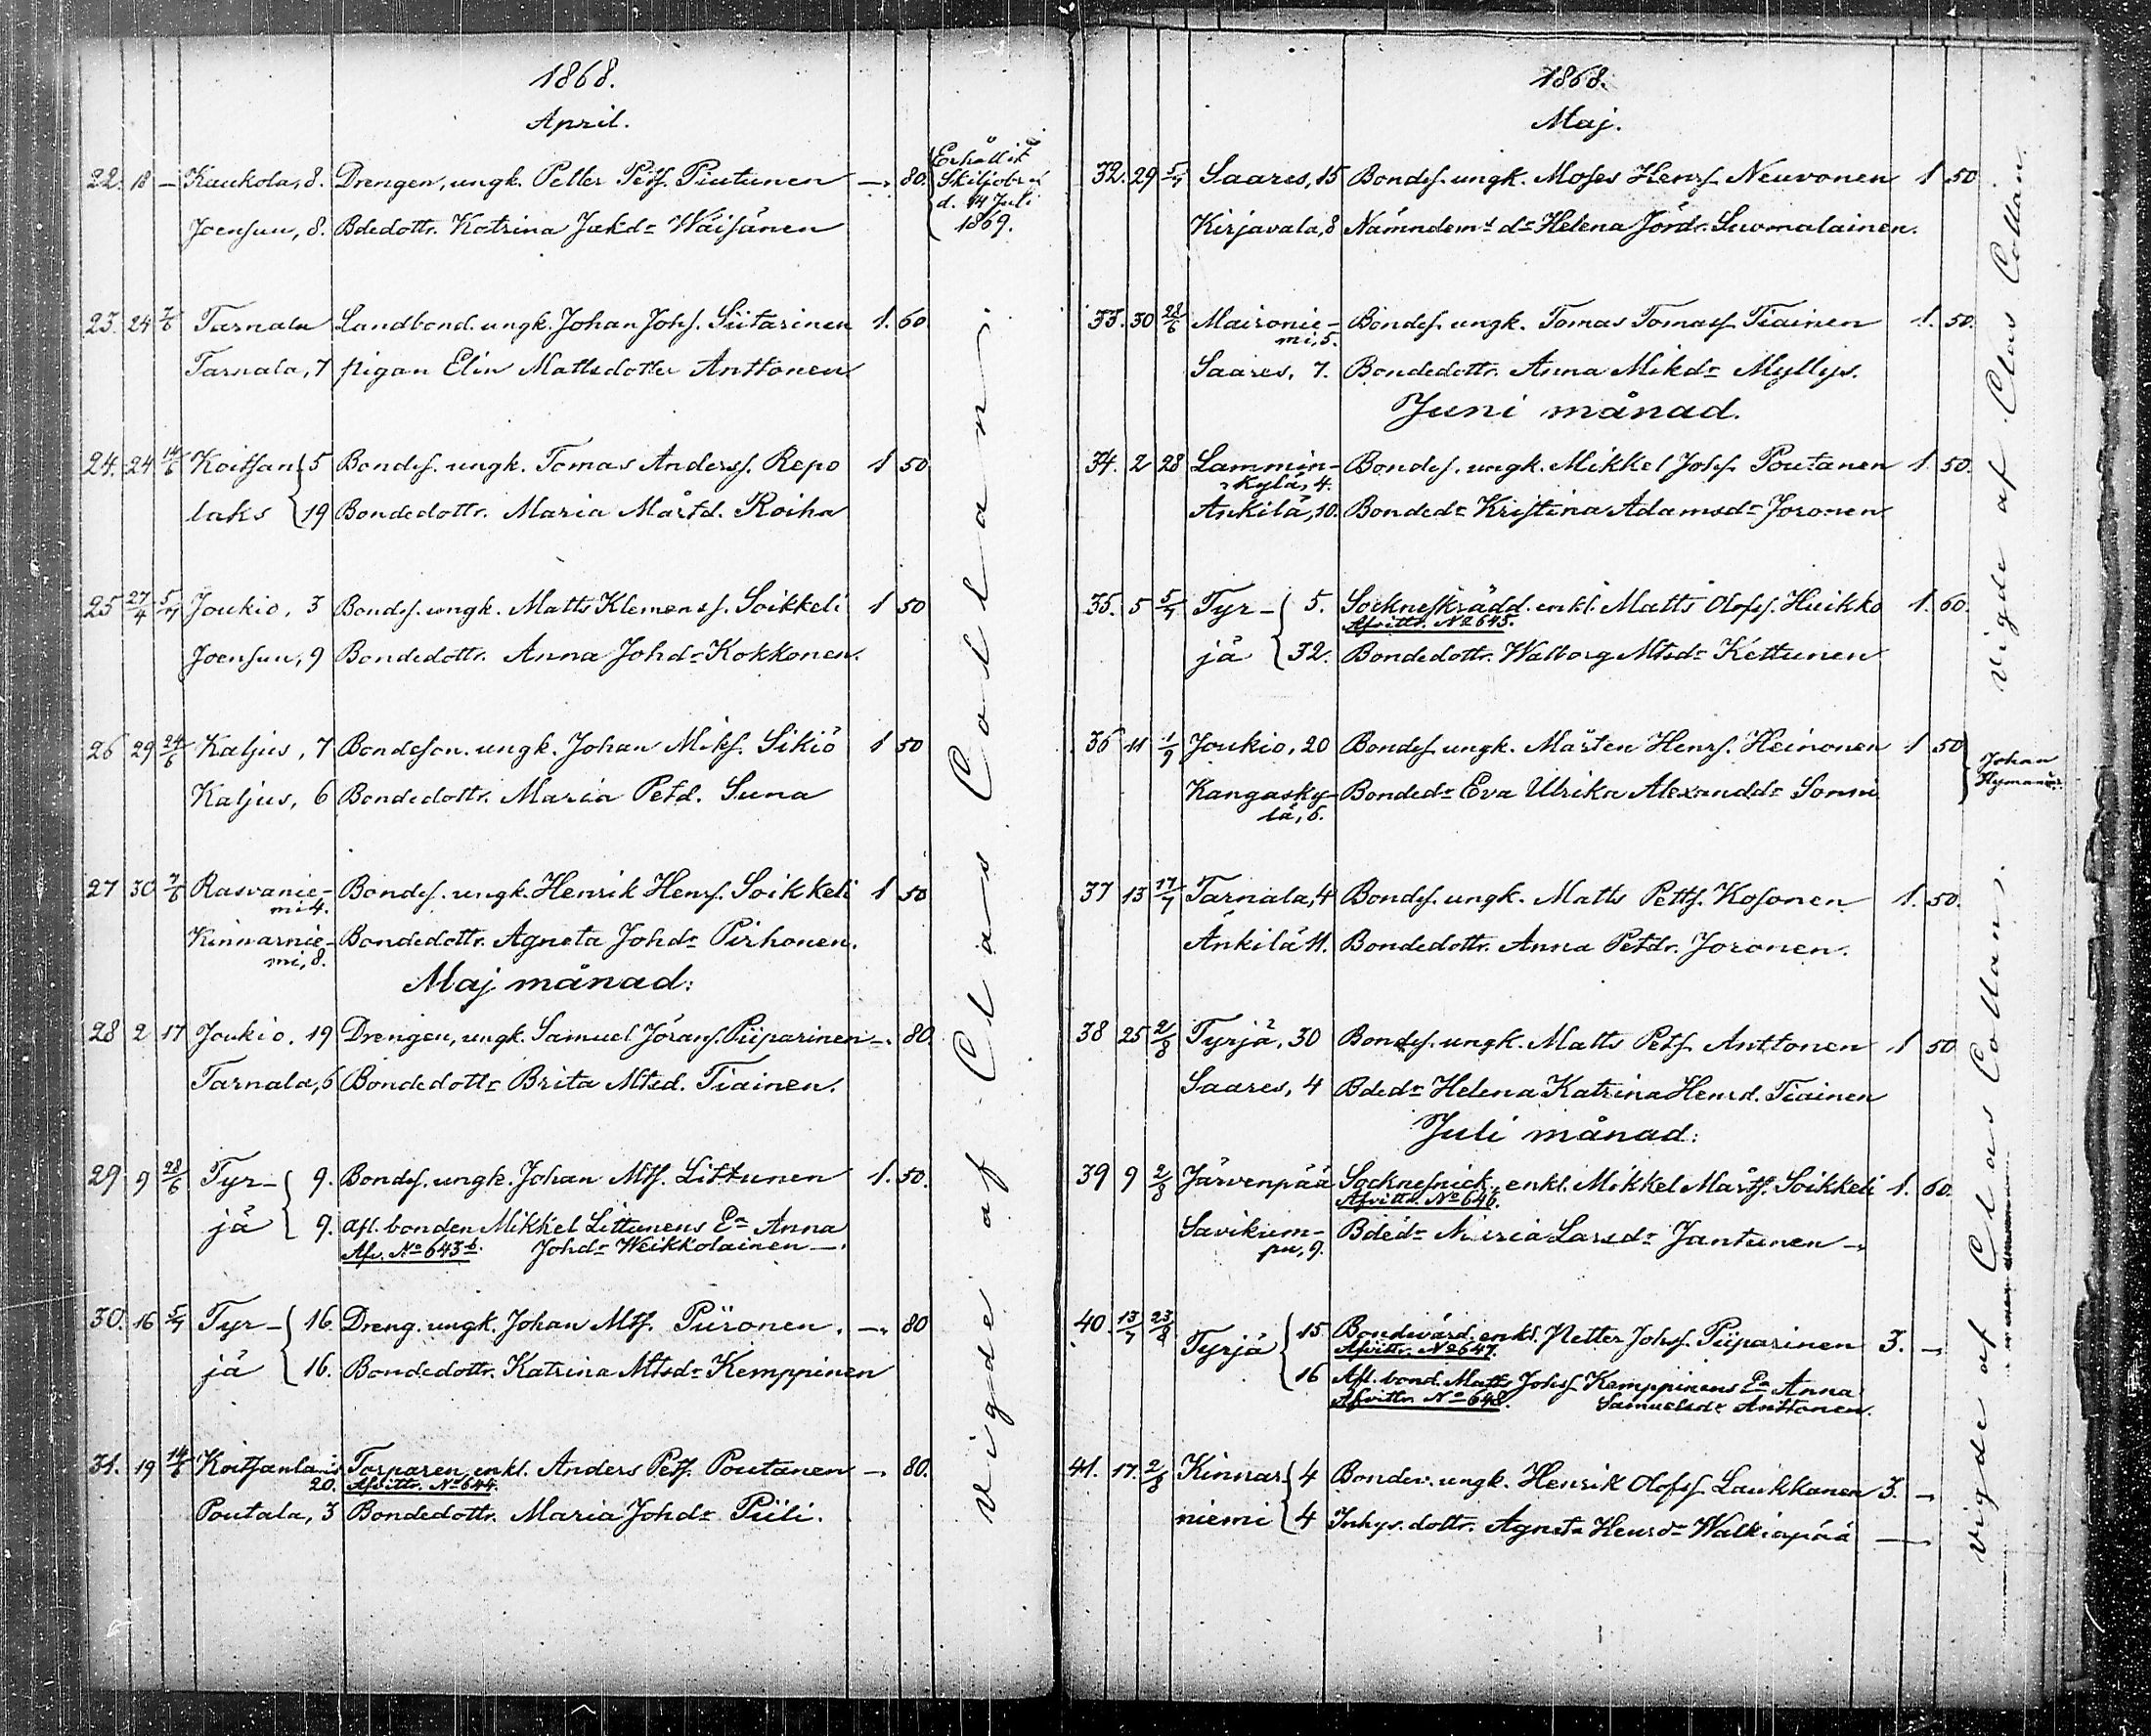 1868.
April.
22. 18 — Kaukola, 8. Drengen, ungk. Petter Petf. Piutunen —. 80.
Joensuu, 8. Bdedottr. Katrina Jakdr Wäisänen
Erhållit
Skiljobr
d. 14 Juli
1869.
23. 24 7/6 Tarnala Landbond. ungk. Johan Johf. Siitarinen 1. 60
Tarnala, 7 pigan Elin Mattsdotter Anttonen
24. 24 14/6 Koitsan 5 Bondef. ungk. Tomas Andersf. Repo 1 50
laks 19 Bondedottr. Maria Mårtd. Roiha
25 27/4 5/7 Joukio, 3 Bondef. ungk. Matts Klemensf. Soikkeli 1 50
Joensuu, 9 Bondedottr. Anna Johdr Kokkonen.
26 29 24/6 Kaljus, 7 Bondeson. ungk. Johan Mikf. Sikiö 1 50
Kaljus, 6 Bondedottr. Maria Petd. Suna
27 30 7/6 Rasvanie-
mi 4. Bondef. ungk. Henrik Henrf. Soikkeli 1 50
Kinnarnie-
mi, 8. Bondedottr. Agneta Johdr Pirhonen.
Maj månad:
28 2 17 Joukio, 19 Drengen, ungk. Samuel Jöransf. Piiparinen —. 80.
Tarnala, 6 Bondedottr Brita Mtsd. Tiainen.
29 9 28/6 Tyr- 9. Bondef. ungk. Johan Mtf. Littunen 1. 50.
jä 9. afl. bonden Mikkel Littunens Ea Anna
Afv. No 643 b. Johdr Weikkolainen —.
30. 16 5/7 Tyr- 16. Dreng. ungk. Johan Mtf. Piironen. —. 80
jä 16. Bondedottr. Katrina Mtsdr Kemppinen
31. 19 14/6 Koitsanla
20. Torparen enkl. Anders Petf. Poutanen —. 80.
Afvittr. No 644.
Poutala, 3 Bondedottr. Maria Johdr Piili.
vigde af Clas Collan.
1868.
Maj.
32. 29 5/7 Saares, 15 Bondef. ungk. Moses Henrf. Neuvonen 1 50
Kirjavala, 8 Nämndems dr Helena Jördr. Suomalainen.
33. 30 28/6 Maironie-
mi, 5. Bondef. ungk. Tomas Tomasf. Tiainen 1. 50.
Saares, 7. Bondedottr. Anna Mikdr Myllys.
Juni månad.
34. 2 28 Lammin-
kylä, 4. Bondef. ungk. Mikkel Johf. Poutanen 1. 50.
Ankila, 10. Bondedr Kristina Adamsdr Joronen
35. 5 5/7 Tyr- 5. Sockneskrädd. enkl. Matts Olofsf. Huikko 1. 60.
Afvittr. No 645.
jä 32. Bondedottr. Walborg Mtsdr Kettunen
36 11 1/9 Joukio, 20 Bondef. ungk. Mårten Henrf. Heinonen 1 50
Johan
Kangasky-
lä, 6. Bondedr Eva Ulrika Alexanddr Sonni
37 13 17/7 Tarnala, 4 Bondef. ungk. Matts Pettf. Kosonen 1. 50.
Änkilä 11. Bondedottr. Anna Petdr. Joronen.
38 25 2/8 Tyrjä, 30 Bondef. ungk. Matts Petf. Anttonen 1 50
Saares, 4 Bdedr Helena Katrina Henrd. Tiainen
Juli månad:
39 9 2/8 Järvenpää Socknesnick. enkl. Mikkel Mårtf. Soikkeli 1. 60.
Afvittr. No 646.
Savikum-
pu, 9. Bdedr Maria Larsdr Jantunen —.
40. 13/7 23/8 Tyrjä 15 Bondevärd. enkl. Petter Johsf. Piiparinen 3. —
Afvittr. No 647.
16 Afl. bond. Matts Johsf. Kemppinens Ea Anna
Afvittr. No 648. Samuelsdr Anttonen.
41. 17. 2/8 Kinnar 4 Bondev. ungk. Henrik Olofsf. Laukkanen 3. —
niemi 4 Inhys. dottr. Agneta Henrdr Walkiapää —
vigde af Clas Collan.
vigde af Clas Collan.